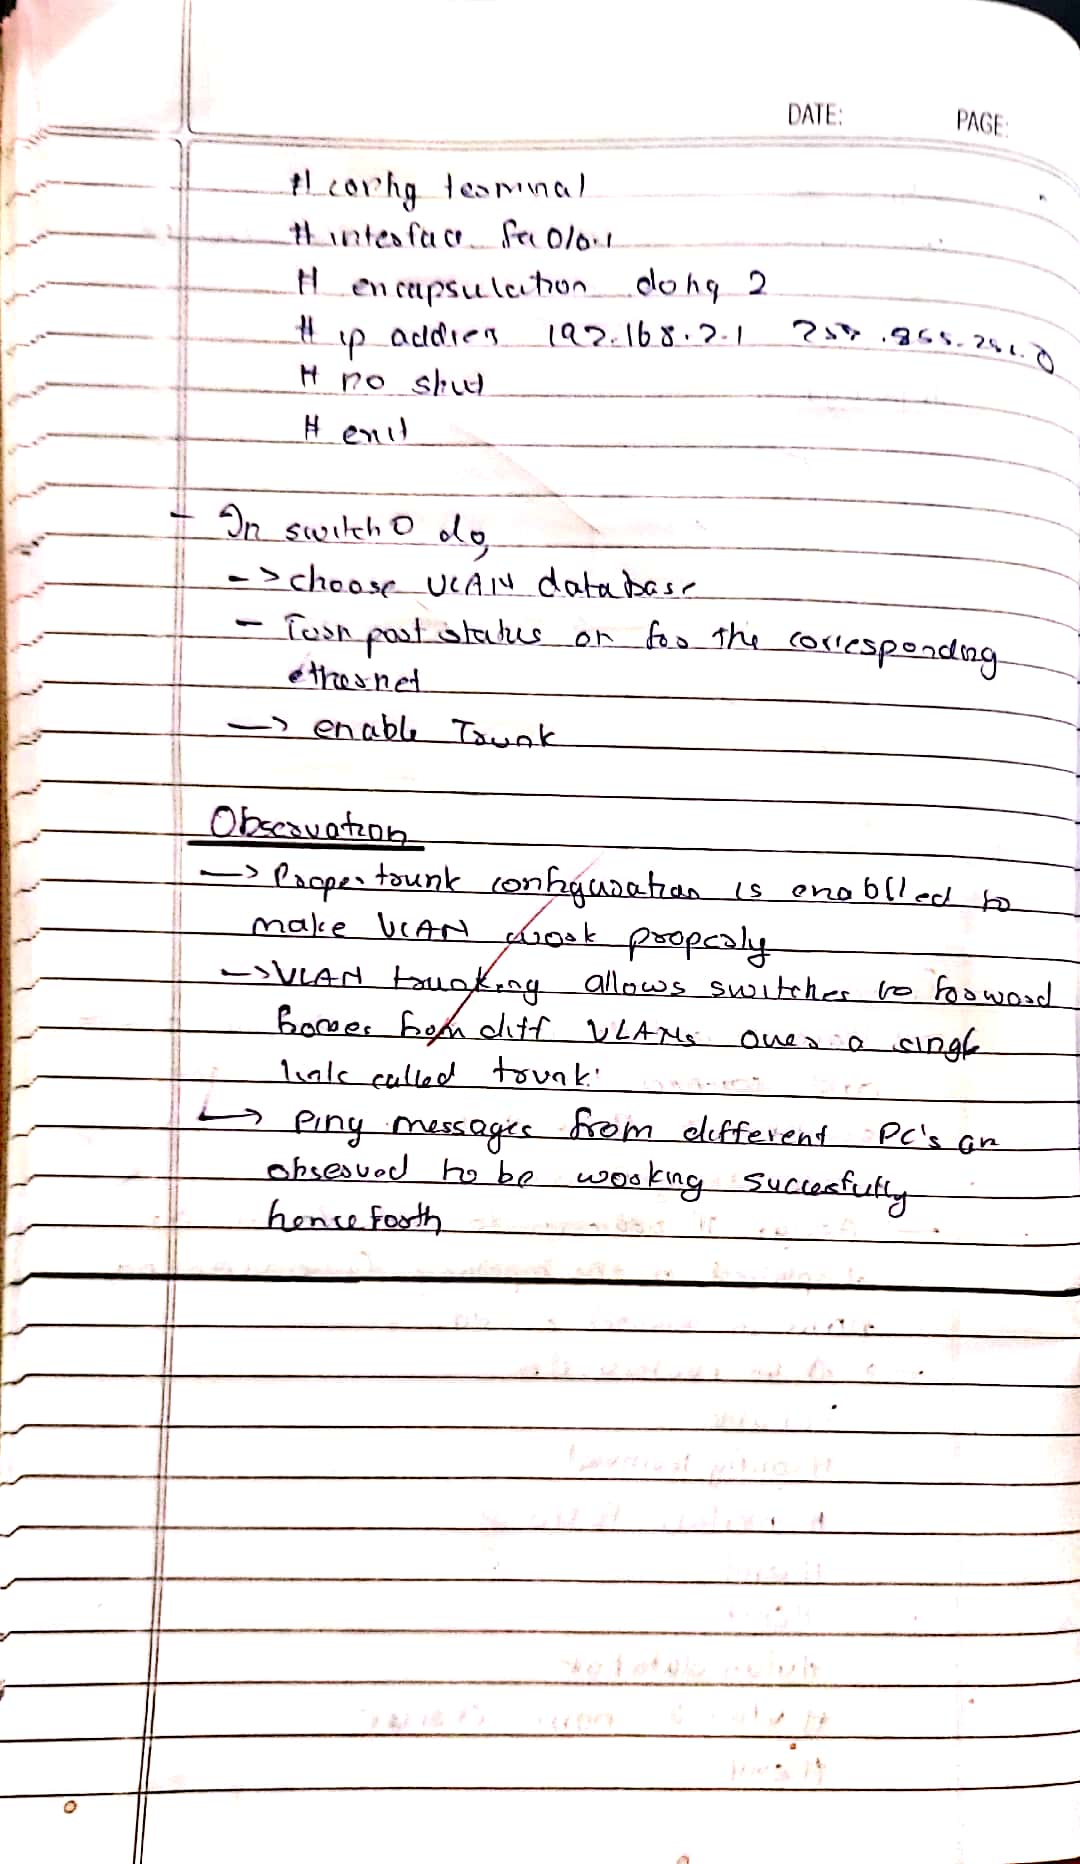 DATE: PAGE:
# config terminal
# interface fa 0/0.1
# encapsulation dot1q 2
# ip address 192.168.2.1 255.255.255.0
# no shut
# exit
- In switch 0 do,
-> choose VLAN database
- Turn port status on for the corresponding
ethernet
-> enable Trunk
Observation
-> Proper trunk configuration is enablled to
make VLAN work properly
-> VLAN trunking allows switches to forward
frames from diff VLANs over a single
link called trunk.
-> Ping messages from different PC's are
observed to be working succesfully
henceforth